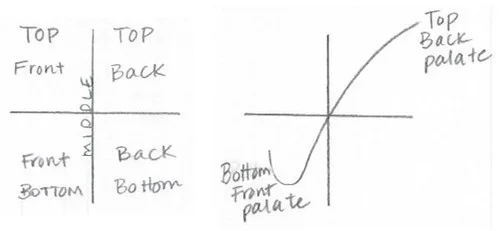 TOP
Front
TOP
Back
MIDDLE
Front
BOTTOM
Back
Bottom
Top
Back
palate
Bottom
Front
palate